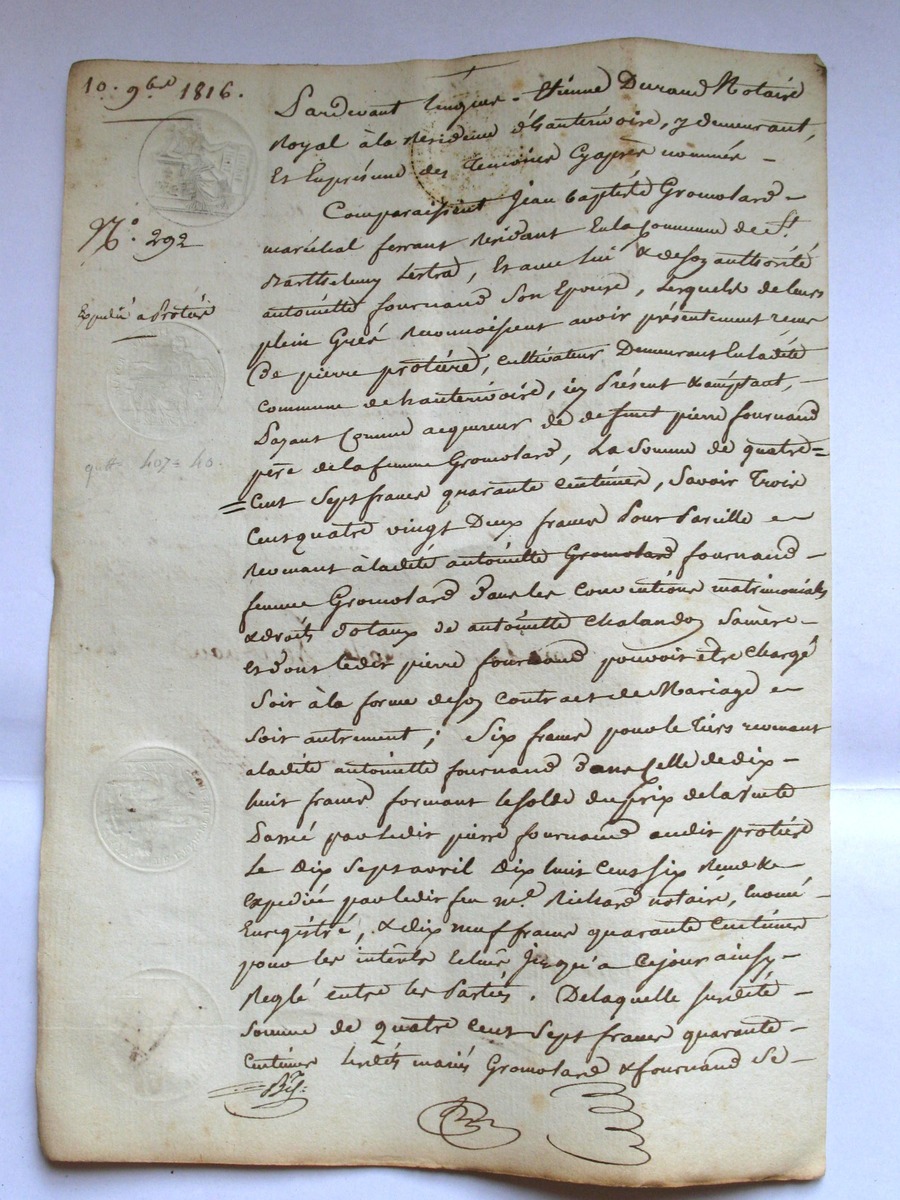 10. 9bre 1816.
N°. 292
Expédié a Protière
qtt 407= 40.
Pardevant Étienne Durand Notaire
Royal à la Résidence d'hauterivoire, y demeurant,
Et En présence des Témoins Cyaprès nommés –
Comparaissent Jean baptiste Gromolard –
maréchal ferrant Residant En la Commune de St.
Barthelemy Lestra, Et avec lui & de soy authorité
antoinette fournand son Epouse, Lesquels de leurs
plein Grés Reconnoissent avoir présentement recus
De pierre protière, cultivateur Demeurant En la dite
commune de hauterivoire, icy Présent & acceptant, –
Payant Comme acquereur de defunt pierre fournand
père de la femme Gromolard, La Somme de quatre=
Cent Sept francs quarante Centimes, Savoir Trois
Cent quatre vingt Deux francs Pour Pareille
Revenant à la dite antoinette Gromolard fournand –
femme Gromolard Dans les Conventions matrimoniales
& droits dotaux de antoinette Chalandon Sa mère –
Et dont le dit pierre fournand pouvoit être Chargé
Soit à la forme de son Contract de Mariage
Soit autrement ; Six francs pour le tiers revenant
a la dite antoinette fournand Dans Celle de dix –
huit francs formant le solde du prix de la Vente
Passé par le dit pierre fournand au dit protière
Le dix Sept avril dix huit Cent Six Reçue &
expediée par le dit feu me. Richard notaire,
Enregistré, & dix neuf francs quarante Centimes
pour les intérêts Echus, jusqu'a Ce jour ainsy –
Reglé entre les Parties. De laquelle susdite –
Somme de quatre cent Sept francs quarante –
Centimes Lesdits mariés Gromolard & fournand Se –